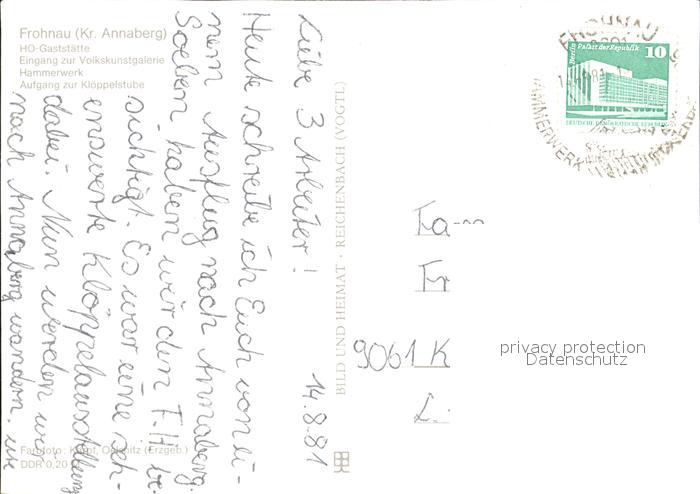 Frohnau (Kr. Annaberg)
HO-Gaststätte
Eingang zur Volkskunstgalerie
Hammerwerk
Aufgang zur Klöppelstube
Liebe 3 Arbeiter! 14.8.81
Heute schreibe ich Euch von ei-
nem Ausflug nach Annaberg.
Soeben haben wir den F.H. be-
sichtigt. Es war eine seh-
enswerte Klöppelausstellung
dabei. Nun werden wir
nach Annaberg wandern, wie
Farbfoto: Oelsnitz (Erzgeb.)
DDR 0,20
BILD UND HEIMAT · REICHENBACH (VOGTL)
FROHNAU
Berlin Palast der Republik 10
DEUTSCHE DEMOKRATISCHE REPUBLIK
HAMMERWERK
Fa
Fr
9061 K
L
privacy protection
Datenschutz